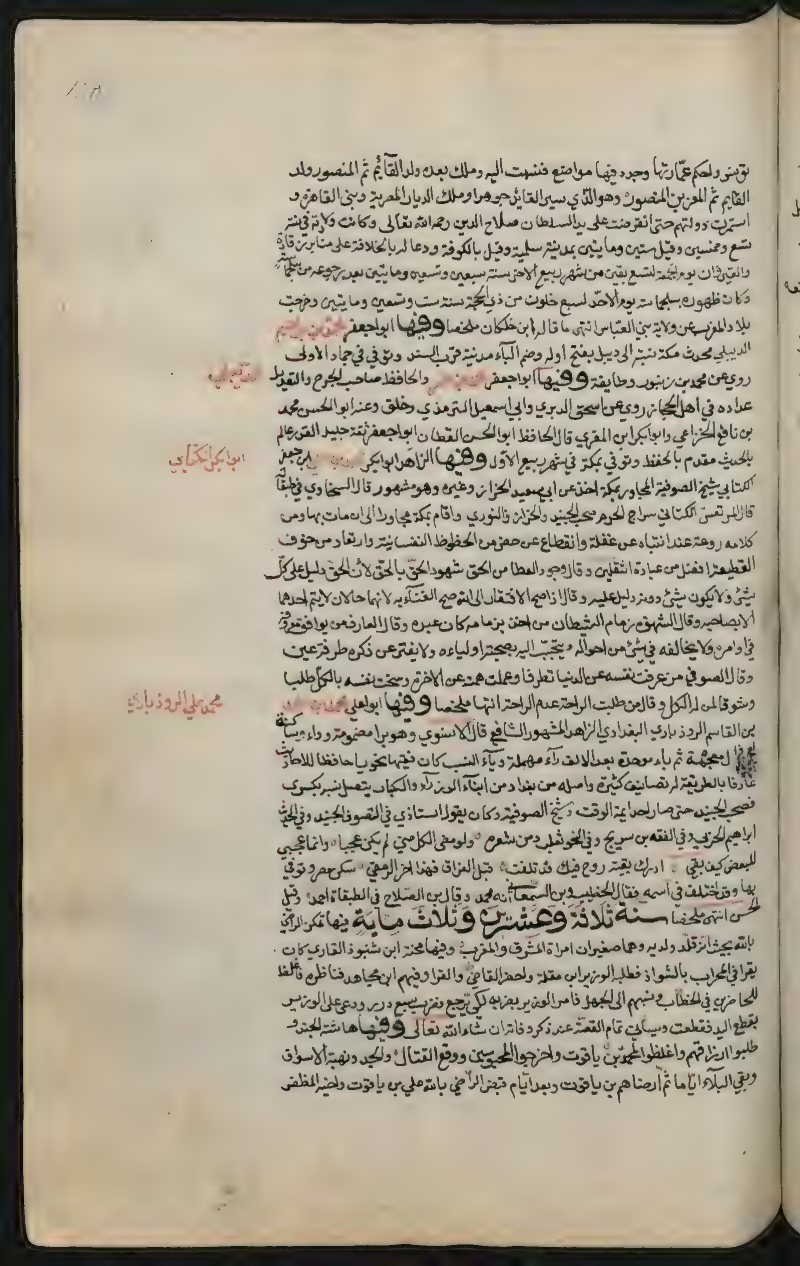 تونس واحكم عمارتها وجدد فيها مواضع فنسبت اليه وملك بعده ولد القائم ثم المنصور ولد
القايم ثم المعز بن المنصور وهو الذي سير القايد جوهرا وملك الديار المصرية وبنى القاهرة و
استمرت دولتهم حتى انقرضت على يد السلطان صلاح الدين رحمه الله تعالى وكانت ولادته في سنة
تسع وخمسين وقيل ستين ومايتين بمدينة سلمية وقيل بالكوفة ودعا له بالخلافة على منابر رقادة
والقيروان يوم الجمعة لتسع بقين من شهر ربيع الاخر سنة سبعين وتسعين ومايتين بعد رجوعه من سجلماسة
وكان ظهوره بسلجماسة يوم الاحد لسبع خلون من ذي الحجة سنة ست وتسعين ومايتين وخرجت
بلاد المغرب عن ولاية بني العباس انتهى ما قاله ابن خلكان ملخصا وفيها ابو جعفر محمد بن ابراهيم
الديبلي محدث مكة نسبته الى ديبل بفتح اوله وضم الباء مدينة قرب السند وتوفي في جماد الاولى
روى عن محمد بن زنبور وطايفة وفيها ابو جعفر والحافظ صاحب الجرح والتعديل
عداده في اهل الحجاز روى عن اسحق الدبري وابي اسمعيل الترمذي وخلق وعنه ابو الحسن محمد
بن نافع الخزاعي وابو بكر ابن المقري قال الحافظ ابو الحسن القطان ابو جعفر ثقة جليل القدر عالم
بالحديث مقدم بالحفظ وتوفي بمكة في شهر ربيع الاول وفيها الزاهد ابو بكر بن جعفر
الكتاني شيخ الصوفية المجاور بمكة اخذ عن ابي سعيد الخراز وغيره وهو مشهور قال السخاوي في طبقاته
قال المرتعش الكتاني سراج الحرم صحب الجنيد والخراز والنوري واقام بمكة مجاورا الى ان مات بها ومن
كلامه روعة عند انتباه عن غفلة وانقطاع عن حض من الحفوظ النفسانية وارتعاد من خوف
القطيعة افضل من عبادة الثقلين وقال وجود العطا من الحق شهود الحق بالحق لان الحق دليل على كل
شيء ولا يكون شيء دونه دليل عليه وقال اذا صح الافتقار الى الله صح الغنا به لانها حالان لا يتم احدهما
الا بصاحبه وقال الشهوة زمام الشيطان من اخذ بزمامه كان عبده وقال العارف من يوافق معروفه
في اوامره ولا يخالفه في شيء من احواله ويتحبب اليه بصحبة اولياءه ولا يفتر عن ذكره طرفة عين
وقال الصوفي من عزفت نفسه عن الدنيا تطرفا وعملت همته عن الاخرة وسخت نفسه بالكل طلبا
وشوقا لمن له الكل وقال من طلب الراحة عدم الراحة انتها ملخصا وفيها ابو علي
بن القاسم الروذباري البغدادي الزاهد المشهور الشافعي قال الاسنوي وهو برا مضمومة وواو ساكنة
ثم باء موحدة بعد الالف راء مهملة وياء النسب كان فقيها نحويا حافظا للاحاديث
عارفا بالطريقة له تصانيف كثيرة واصله من بغداد من ابناء الوزراء والكتاب يتصل نسبه بكسرى
فصحب الجنيد حتى صار احد ايمة الوقت وشيخ الصوفية وكان يقول استاذي في التصوف الجنيد وفي الحديث
ابراهيم الحربي وفي الفقه بن سريج وفي النحو ثعلب ومن شعره ولو مضى الكل مني لم يكن عجبا وانما عجبي
للبعض كيف بقي ادرك بقية روح فيك قد تلفت قبل الفراق فهذا اخر الرمق سكن مصر وتوفي
بها وقد اختلف في اسمه فقال الخطيب وبن السمعاني انه محمد وقال بن الصلاح في الطبقات احمد وقيل
الحسن انتهى ملخصا سنة ثلاثة وعشرين وثلاث ماية فيها تمكن الراضي
بالله بحيث انه قلد ولديه وهما صغيران امرة المشرق والمغرب وفيها محنة ابن شنبوذ القاري كان
يقرا في المحراب بالشواذ فطلبه الوزير ابن مقلة واحضر القاضي والقرا وفيهم ابن مجاهد فناظره فاغلظ
للحاضرين في الخطاب ونسبهم الى الجهل فامر الوزير بضربه لكي يرجع فضرب سبع درر ودعى على الوزير
بقطع اليد فقطعت وسياتي تمام القصة عند ذكر وفاته ان شاء الله تعالى وفيها هاشت الجند و
طلبوا ارزاقهم واغلظوا لمحمد بن ياقوت واخرجوا المحبوسين ووقع القتال والجد ونهبة الاسواق
وبقي البلاء اياما ثم ارضاهم بن ياقوت وبعد ايام قبض الراضي بالله على بن ياقوت واخيه المظفر
ابو بكر الكتاني
محمد علي الروذباري